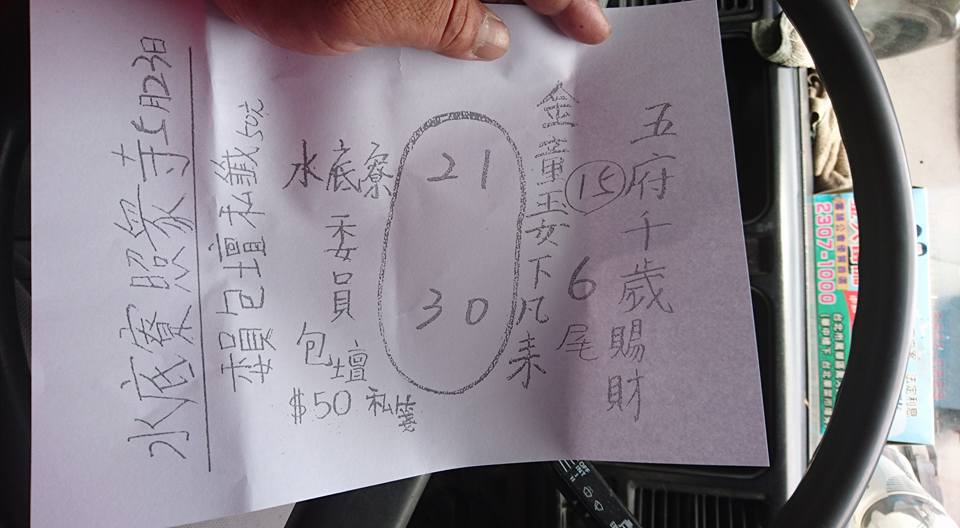 五府千歲賜財
15
6尾
金童玉女下凡来
21
30
水底寮
委員
包壇
$50 私簽
水底寮照眾寺5月23日
包壇私籤50元
2307-1000